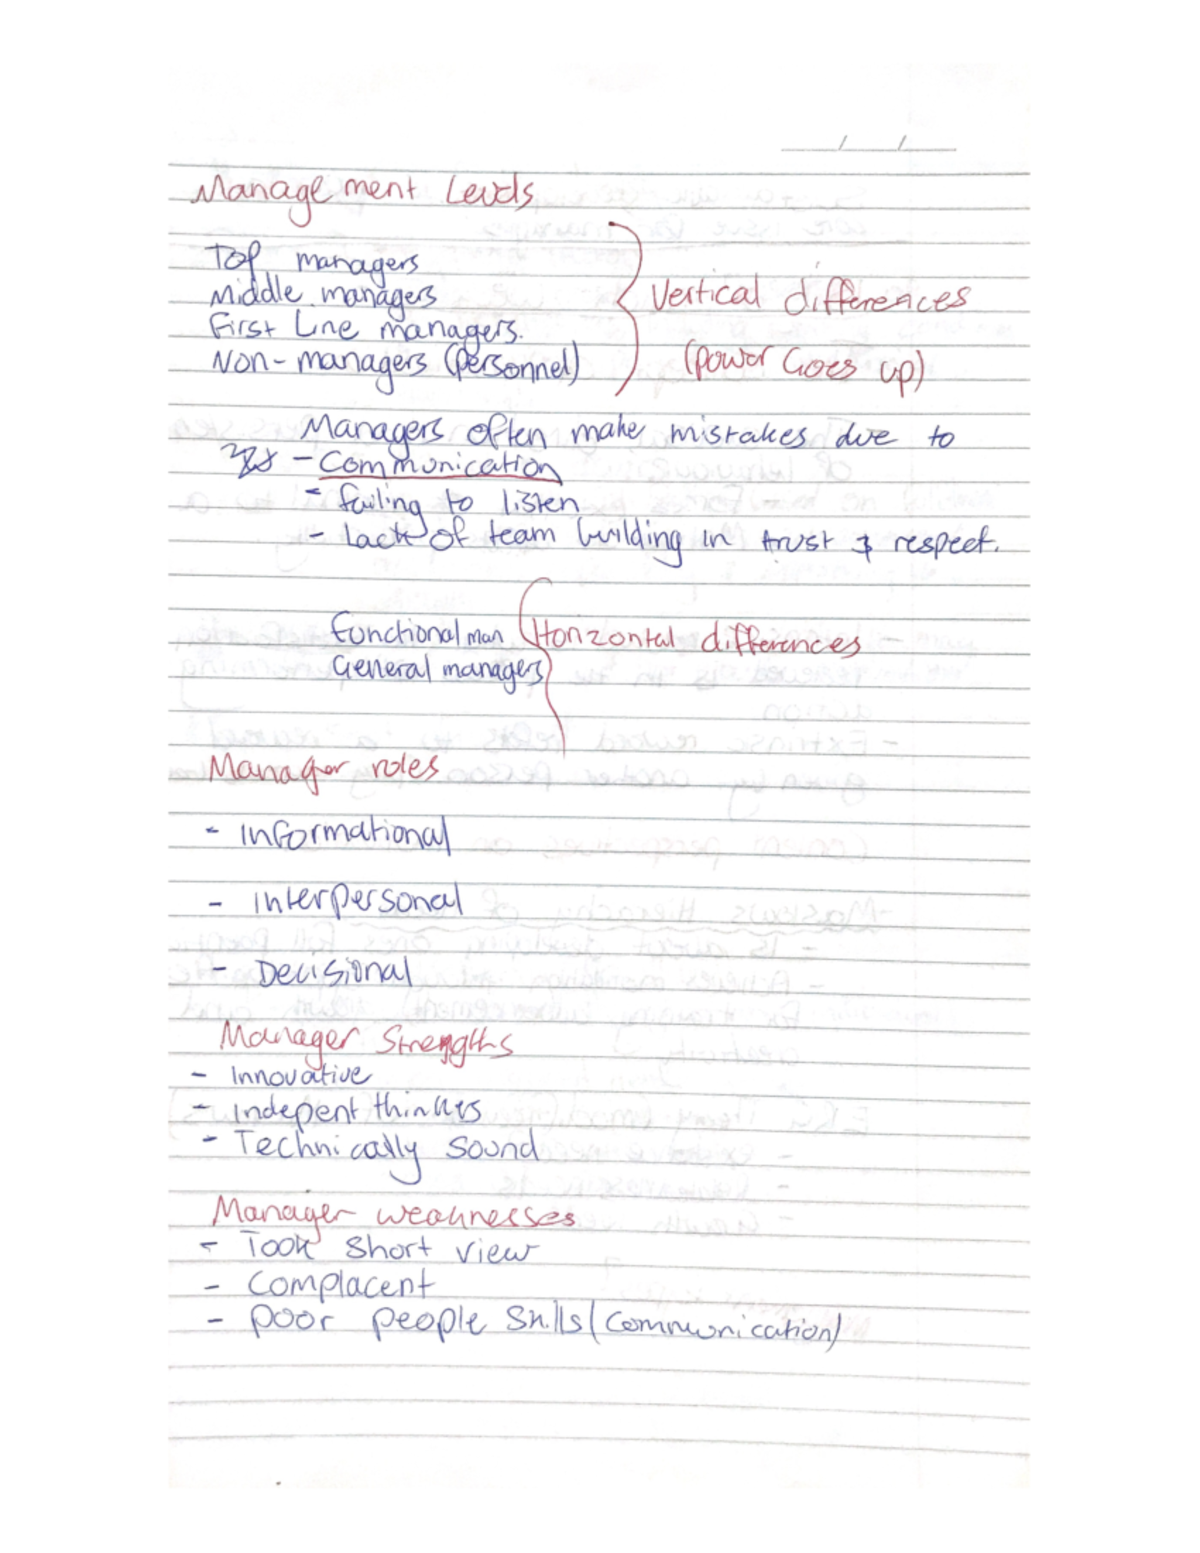 Management Levels
Top managers
Middle managers
First Line managers.
Non-managers (personnel)
Vertical differences
(power Goes up)
Managers often make mistakes due to
- Communication
- failing to listen
- lack of team building in trust & respect.
Functional man
General managers
Horizontal differences
Manager roles
- Informational
- Interpersonal
- Decisional
Manager Strengths
- Innovative
- Indepent thinkers
- Technically Sound
Manager weaknesses
- Took Short view
- Complacent
- Poor people Skills (Communication)